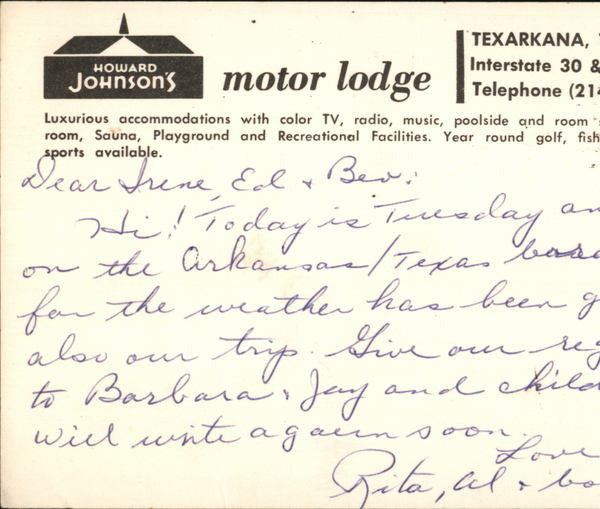 HOWARD
JOHNSON'S
motor lodge
TEXARKANA,
Interstate 30 &
Telephone (214
Luxurious accommodations with color TV, radio, music, poolside and room
room, Sauna, Playground and Recreational Facilities. Year round golf, fish
sports available.
Dear Irene, Ed & Bev:
Hi! Today is Tuesday an
on the Arkansas/Texas bord
far the weather has been g
also our trip. Give our reg
to Barbara & Jay and child
will write again soon.
Love
Rita, Al & bo